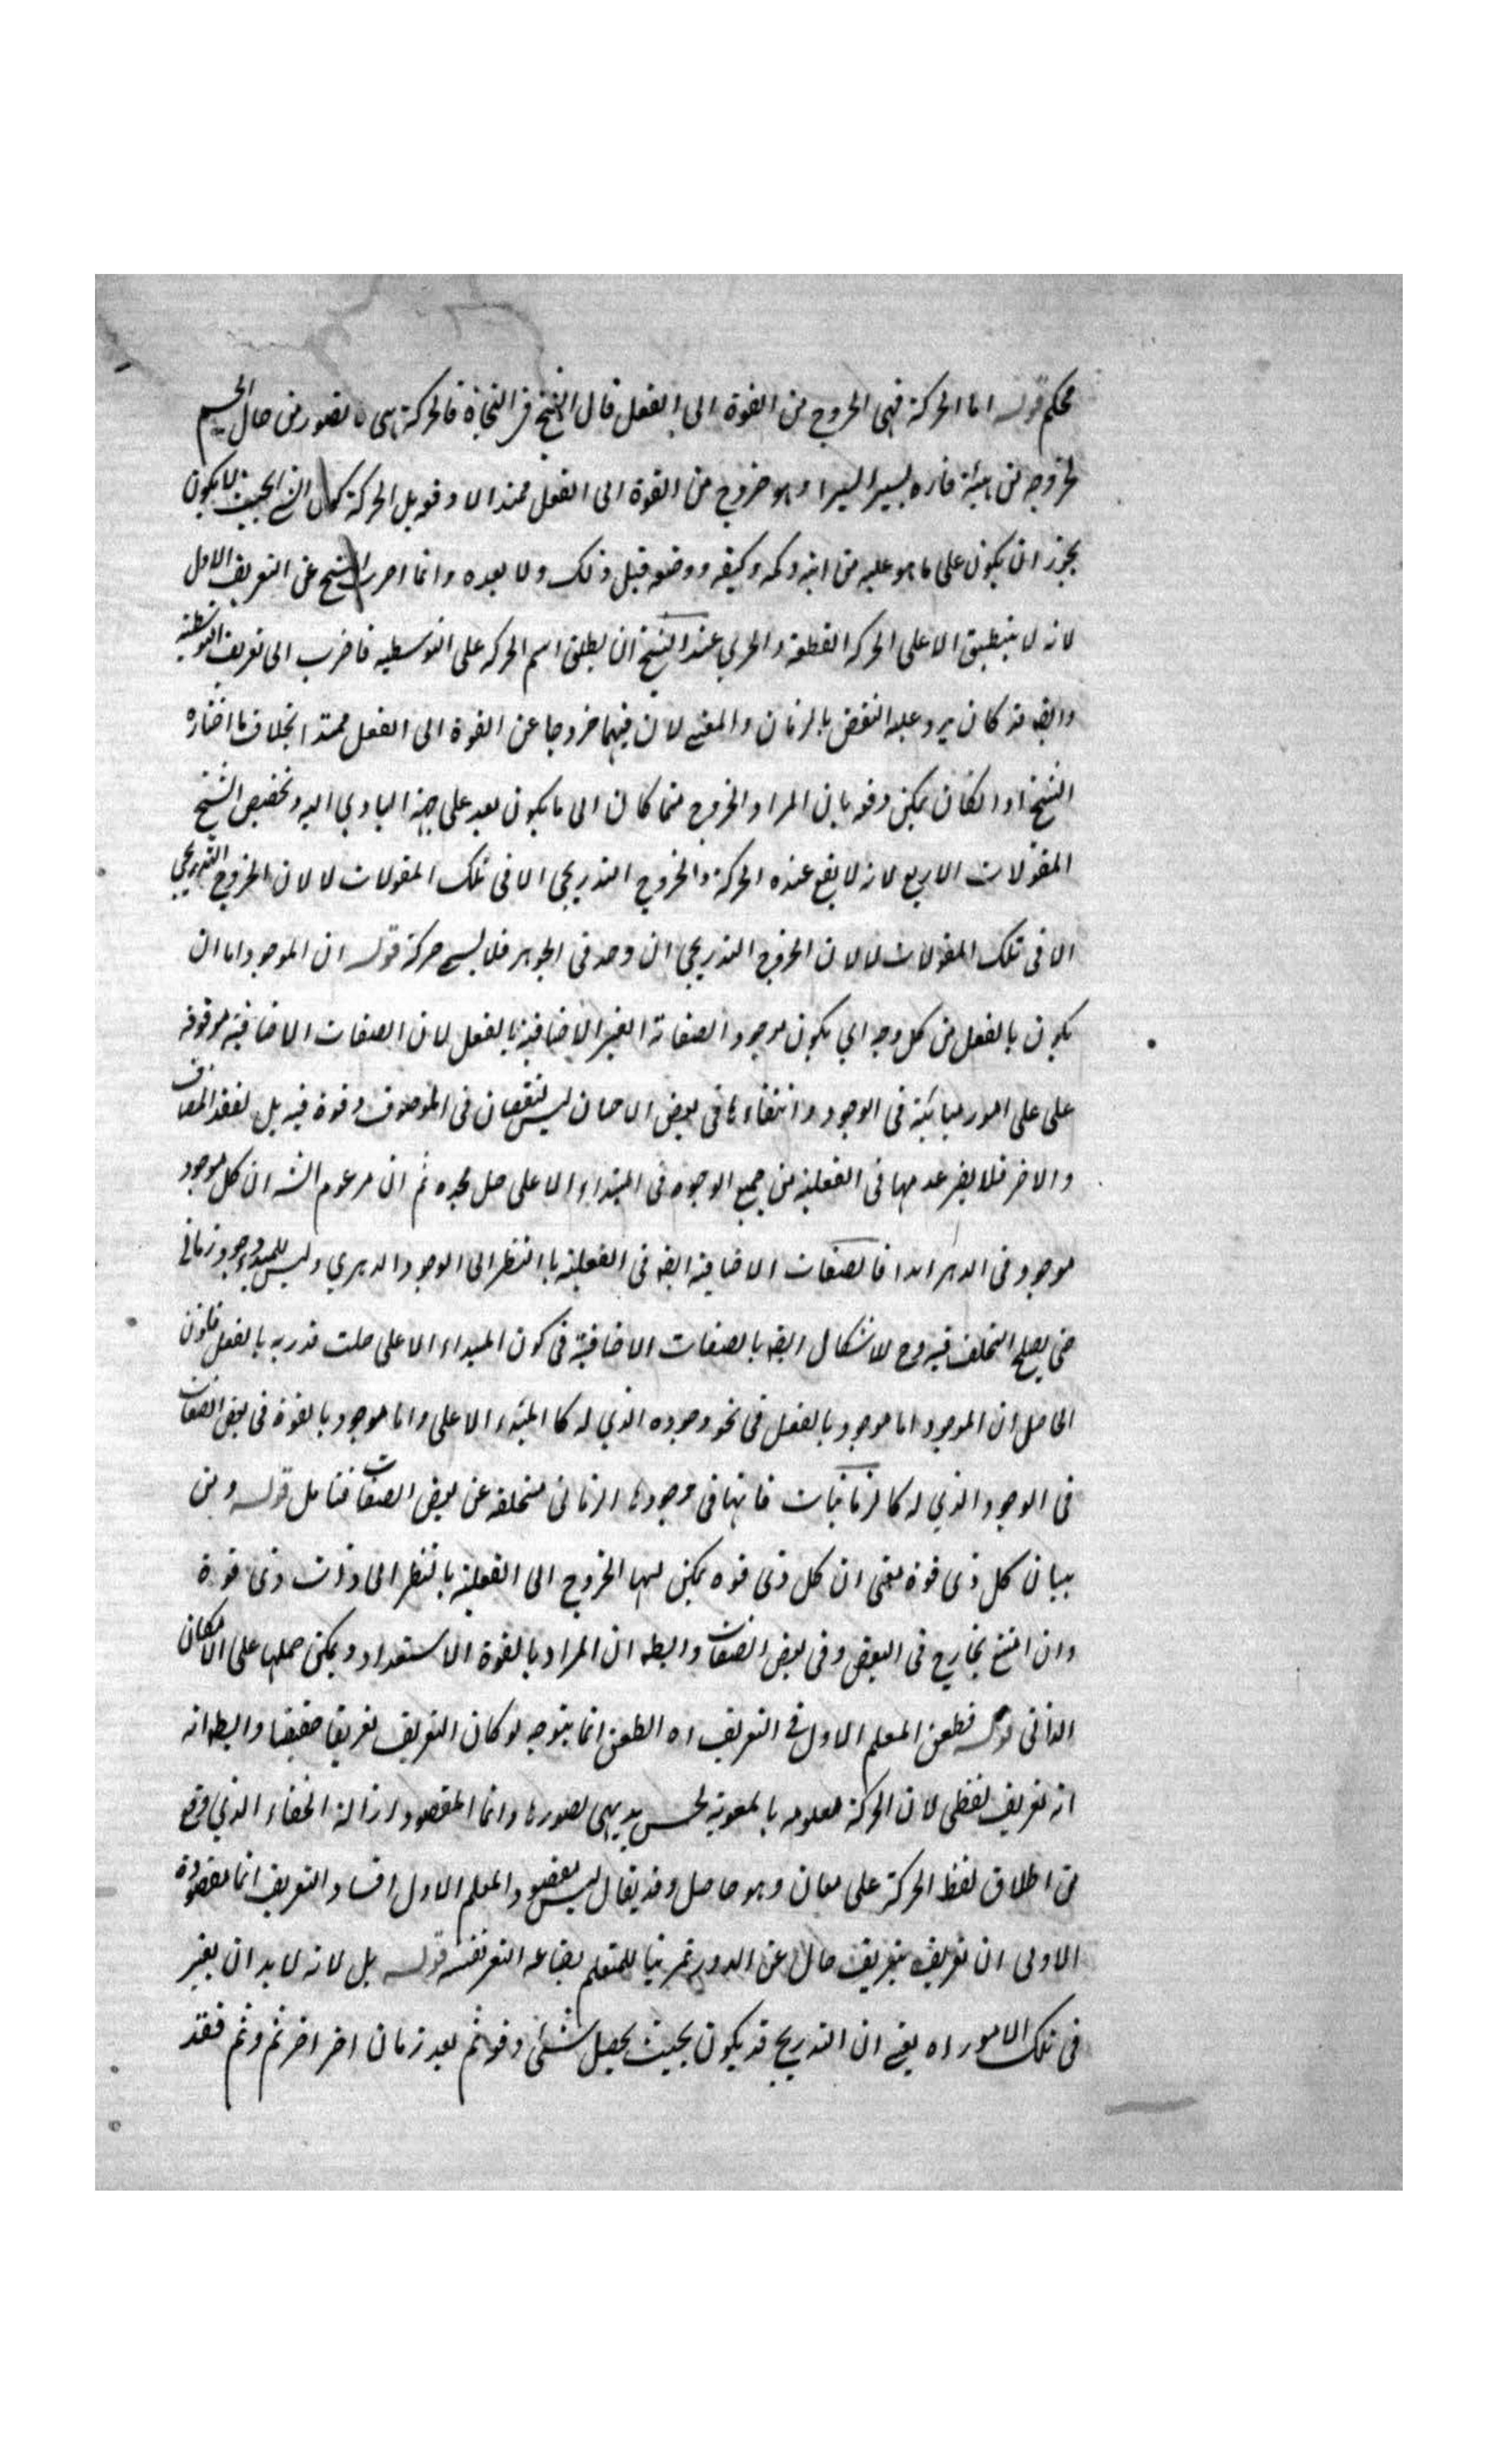 محكم قوله اما الحركة فهى الخروج من القوة الى الفعل قال الشيخ فى النجاة فالحركة هى ما تصور من حال الجسم
لخروجه من هيئة قاره يسيرا يسيرا وهو خروج من القوة الى الفعل ممتدا لا دفعة بل الحركة كمال الشيء بحيث لا يكون
يجوز ان يكون على ما هو عليه من اينه وكمه وكيفه ووضعه قبل ذلك ولا بعده وانما الشيخ عن التعريف الاول
لانه لا ينطبق الا على الحركة القطعية والحري عند الشيخ ان يطلق اسم الحركه على التوسطيه فاضرب الى تعريف التوسطية
وايضه قد كان يرد عليه النقض بالزمان والمقتـ لان فيهما خروجا عن القوة الى الفعل ممتدا بخلاف ما اختاره
الشيخ اولا لكان يمكن دفعه بان المراد الخروج عما كان الى ما يكون بعد على البادي اليه وتخصيص الشيخ
المقولات الاربع لانه لا يقع عنده الحركة والخروج التدريجى الا فى تلك المقولات لا لان الخروج التدريجى
الا فى تلك المقولات لا لان الخروج التدريجى ان وجد فى الجوهر فلا يسمى حركة قوله ان الموجود اما ان
يكون بالفعل من كل وجه اي يكون موجود الصفاته الغير الاضافية بالفعل لان الصفات الاضافية موقوفة
على على امور مباينة فى الوجود وانتفاءها فى بعض الاحيان ليس لنقصان فى الموصوف وقوة فيه بل لفقد المضاف
والاخر فلا يضر عدمها فى الفعلية من جميع الوجوه فى المبتداء الاعلى جل مجده ثم ان مزعوم الشه ان كل موجود
موجود فى الدهر ابدا فالصفات الاضافية ايضه فى الفعلية بالنظر الى الوجود الدهري وليس للمبدء وجود زمانى
حتى يصلح التخلف فيه وح لا اشكال ايضه بالصفات الاضافية فى كون المبداء الاعلى جلت قدرته بالفعل فاذن
الحاصل ان الموجود اما موجود بالفعل فى نحو وجوده الذي له كالمبدء الاعلى واما موجود بالقوة فى بعض الصفات
فى الوجود الذي له كالزمانيات فانها فى وجودها الزمانى متخلفه عن بعض الصفات فتامل قوله ومن
ببيان كل ذى قوة يعنى ان كل ذى قوه يمكن لها الخروج الى الفعلية بالنظر الى ذات ذى قوة
وان امتنع بخارج فى البعض وفى بعض الصفات والظه ان المراد بالقوة الاستعداد ويمكن حملها على الامكان
الذاتى قوله فطعن المعلم الاول فى التعريف اه الطعن انما يتوجه لو كان التعريف تعريفا حقيقيا والظه انه
انه تعريف لفظى لان الحركة معلومه بالمعونة لحس بديهى تصورها وانما المقصود ازالة الخفاء الذي وقع
من اطلاق لفظ الحركة على معان وهو حاصل وقد يقال ليس مقصود المعلم الاول افساد التعريف انما مقصوده
الاولى ان تعريفه بتعريف خال عن الدور تمرينا للمتعلم بضاعه التعريفيه قوله بل لانه لا بد ان يعتبر
فى تلك الامور اه يعنى ان التدريج قد يكون بحيث يحصل شئ دفعة ثم بعد زمان اخر اخر ثم وثم فقد